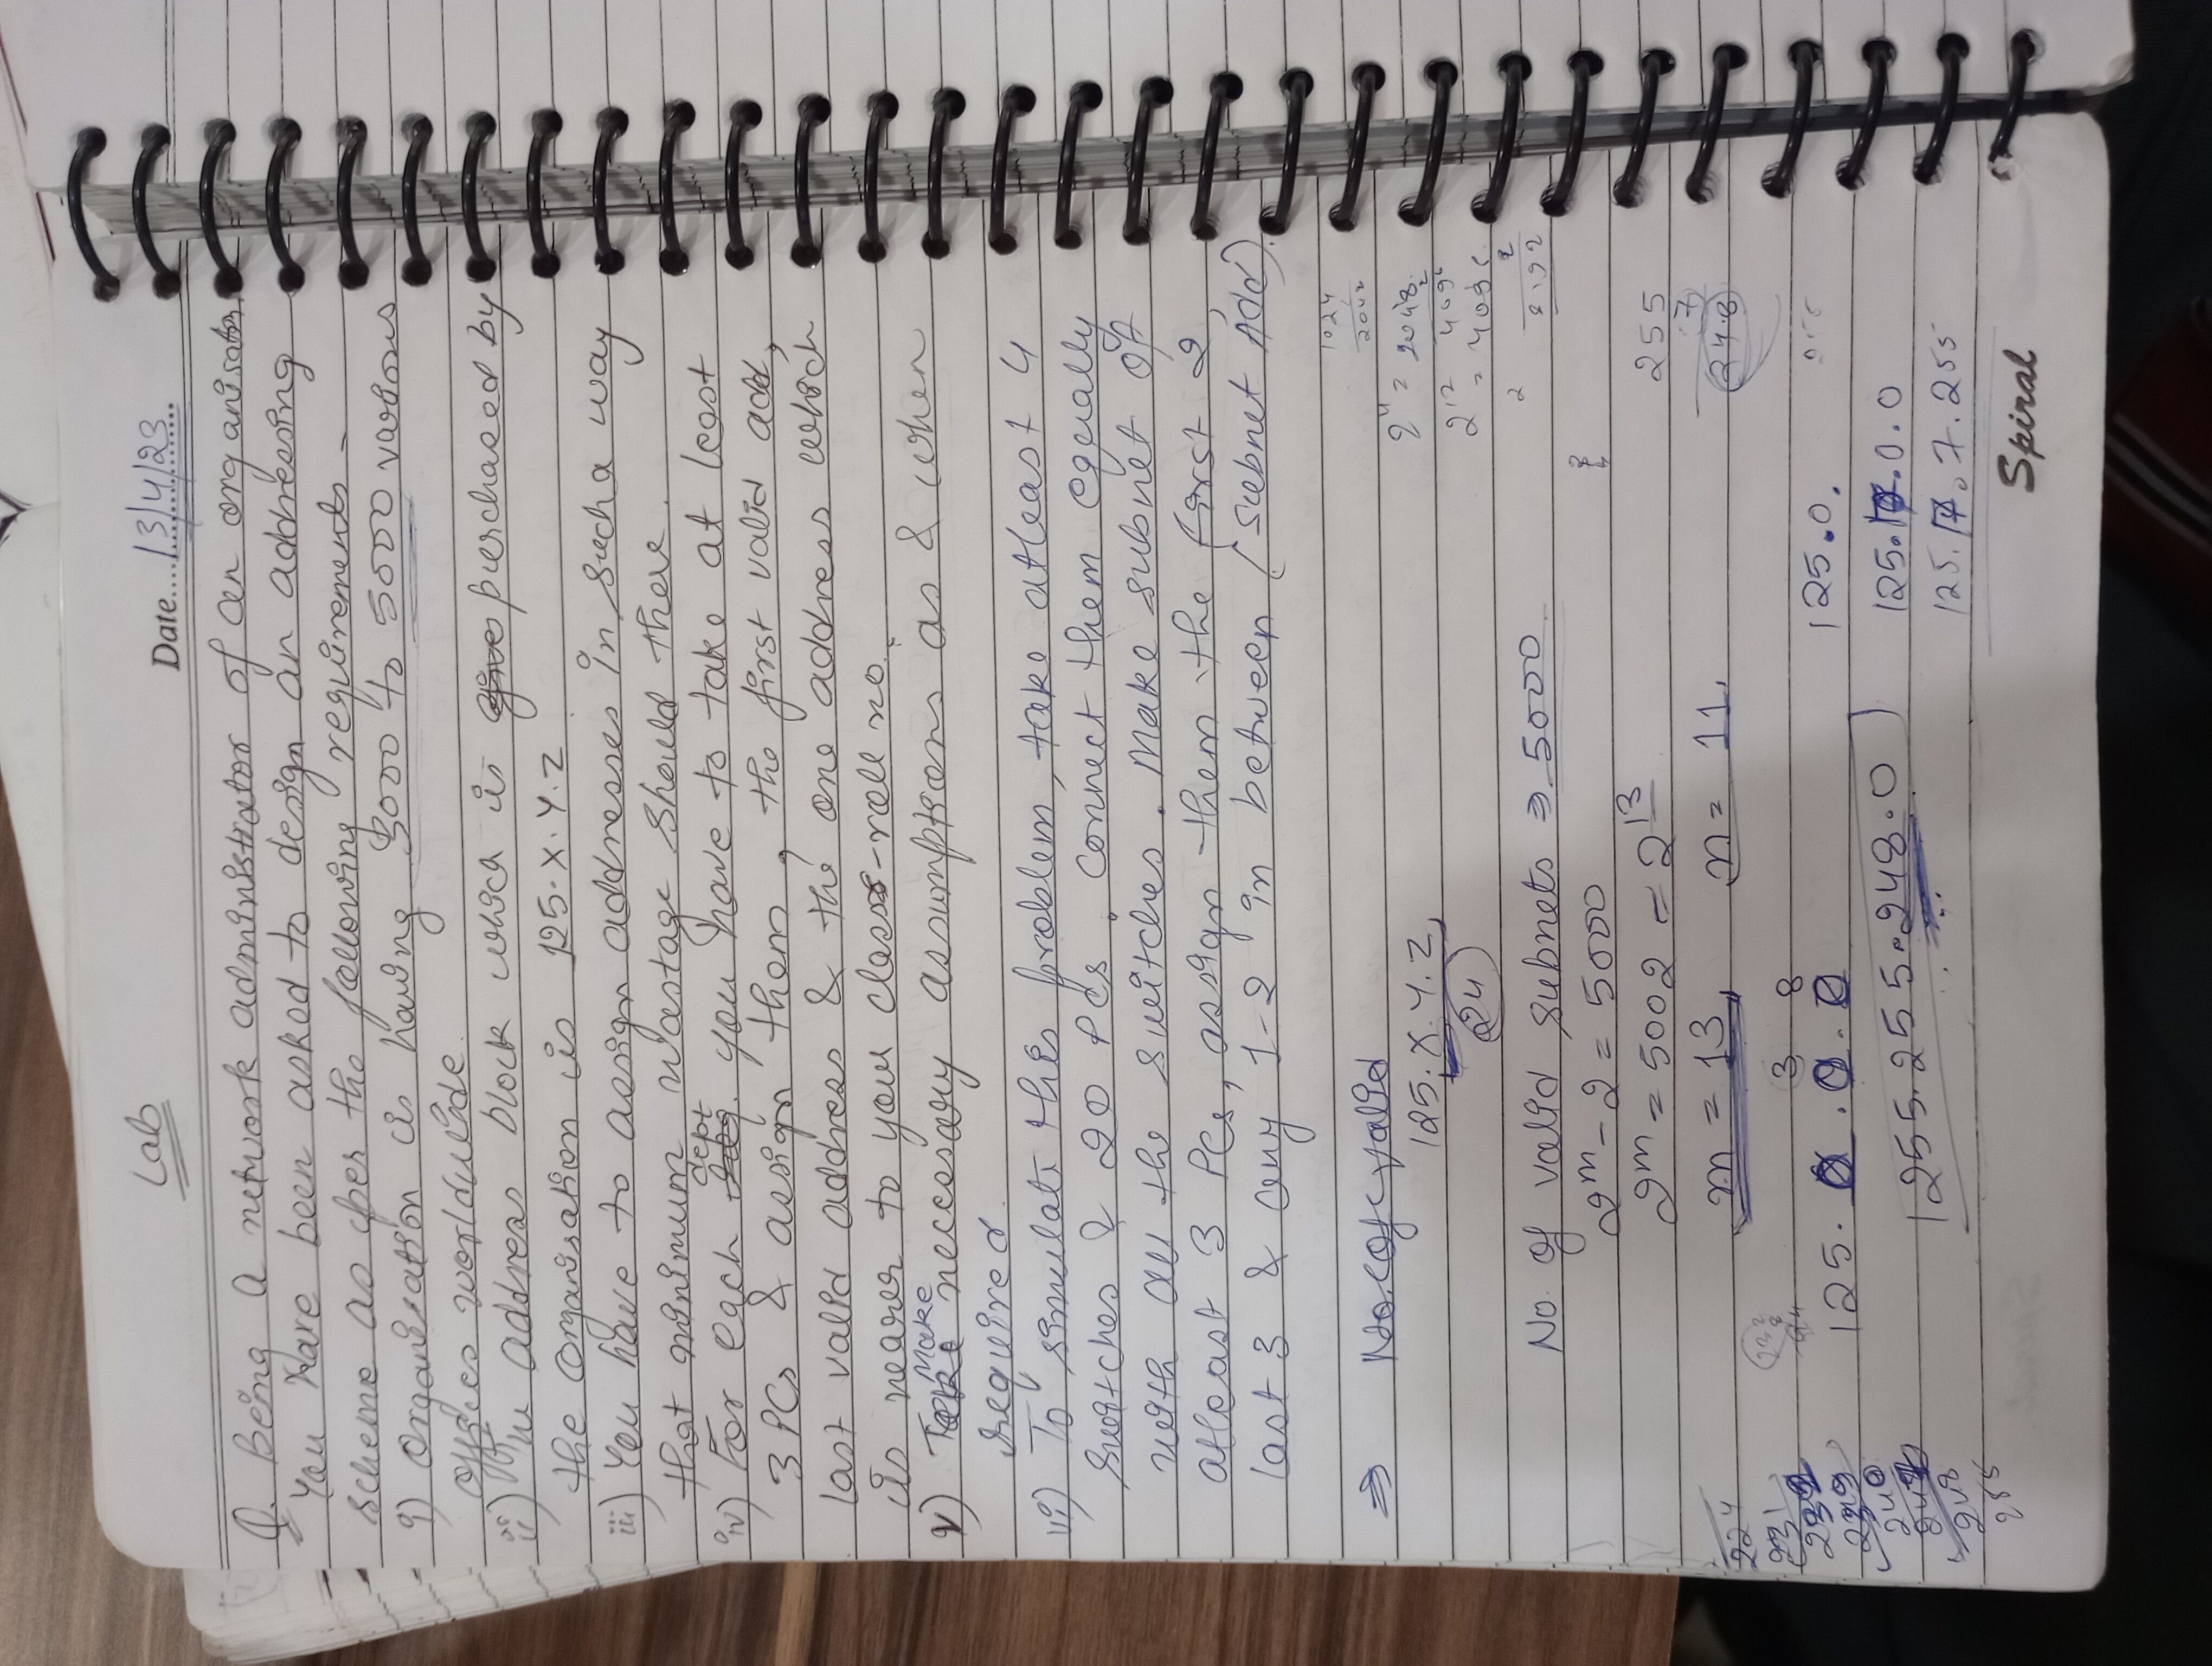 Lab
Date....13/4/23
Q. Being a network administrator of an organisation.
You have been asked to design an addressing
scheme as per the following requirements -
i) Organisation is having 3000 to 5000 various
offices worldwide.
ii) The address block which is give purchased by
the organisation is 125.X.Y.Z
iii) You have to assign addresses in such a way
that minimum wastage should there.
dept
iv) For each you have to take at least
3 PCs & assign them, the first valid add,
last valid address & the one address which
is nearer to your class-roll no.
Make
v) Take necessary assumptions as & when
required.
vi) To simulate this problem, take atleast 4
switches & 20 PCs. Connect them equally
with all the switches. Make subnet of
atleast 3 PCs, assign them the first 2,
last 3 & any 1-2 in between (Subnet Add).
1024
2042
⇒ No. of valid
125.X.Y.Z
24
2048
2
4096
2^12 = 409
2
8192
No. of valid subnets ⇒ 5000
2^m - 2 = 5000
2^m = 5002 = 2^13
m = 13, n = 11,
255
7
248
224
231
232
239
240
247
248
255
3 8
125. 0 . 0 . 0
255.255.248.0
125.0.
125. .0.0
125. .7.255
Spiral